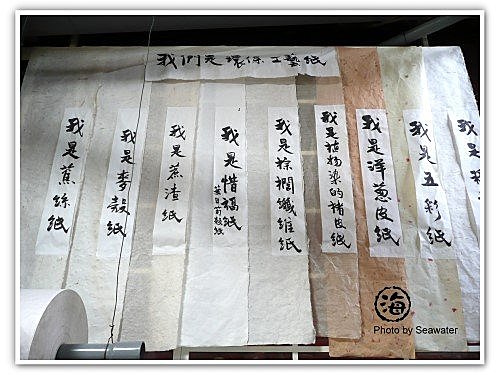 我們是環保工藝紙
我是蕉絲紙
我是麥殼紙
我是蔗渣紙
我是惜福紙
我是棕櫚纖維紙
我是植物染的楮皮紙
我是洋蔥皮紙
我是五彩紙
我是
海
Photo by Seawater